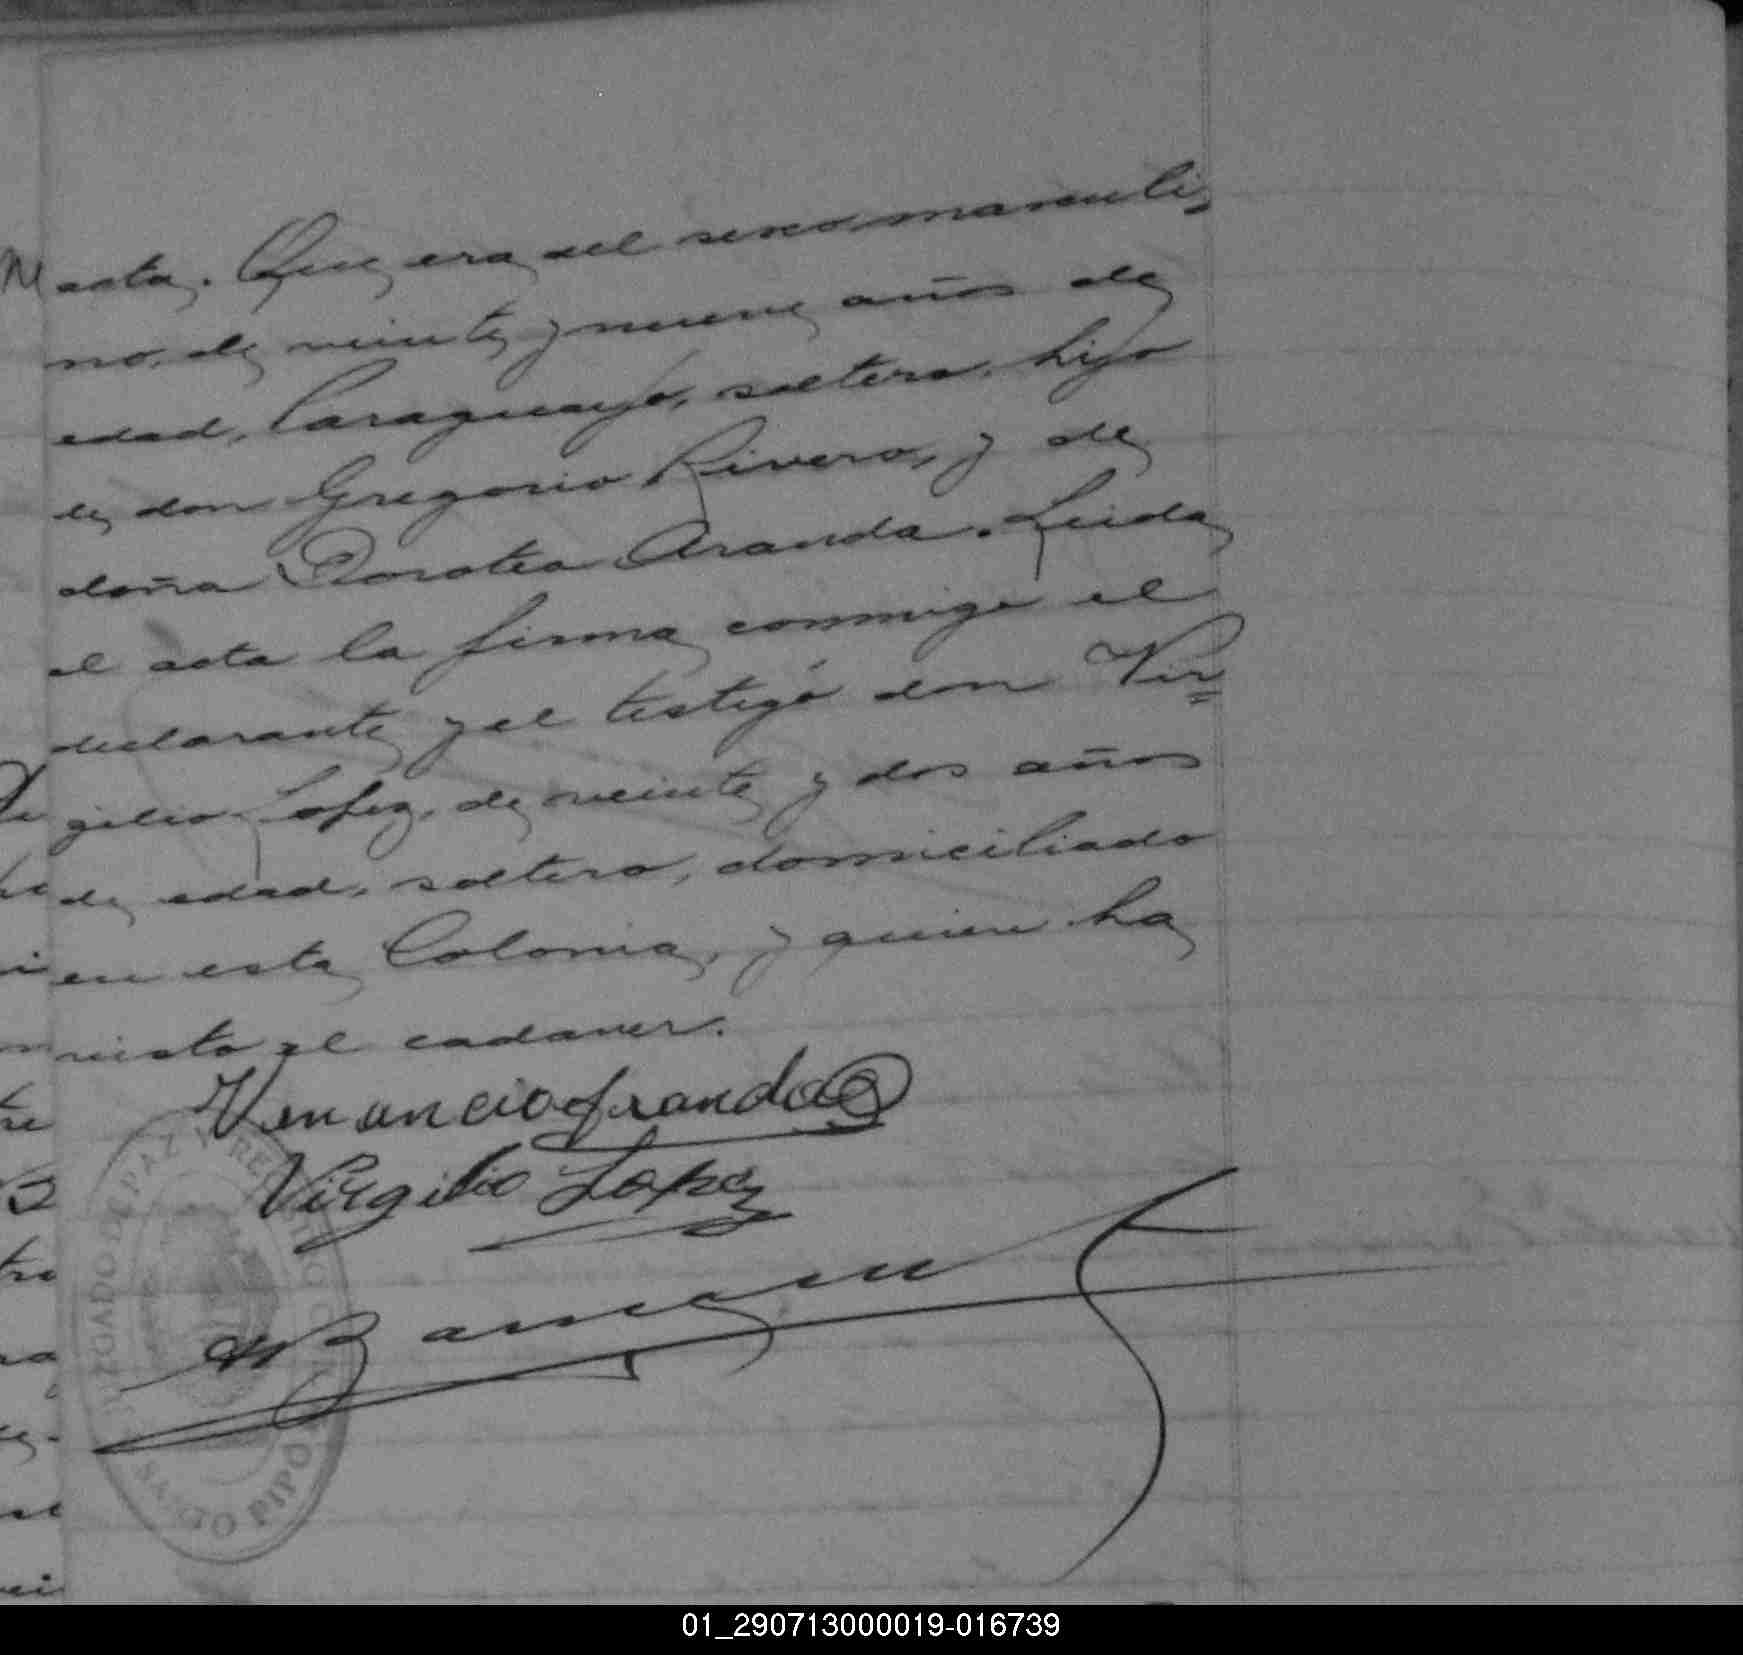 acta. Que era del sexo masculi-
no, de veinte y nueve años de
edad, Paraguayo, soltero, hijo
de don Gregorio Rivero, y de
doña Dorotea Aranda. Leida
el acta la firma conmigo el
declarante y el testigo don Vir=
gilio Lopez, de veinte y dos años
de edad, soltero, domiciliado
en esta Colonia, y quien ha
visto el cadaver.
Venancio Aranda
Virgilio Lopez
JUZGADO DE PAZ Y REGISTRO
SANTO PIPO
01_290713000019-016739